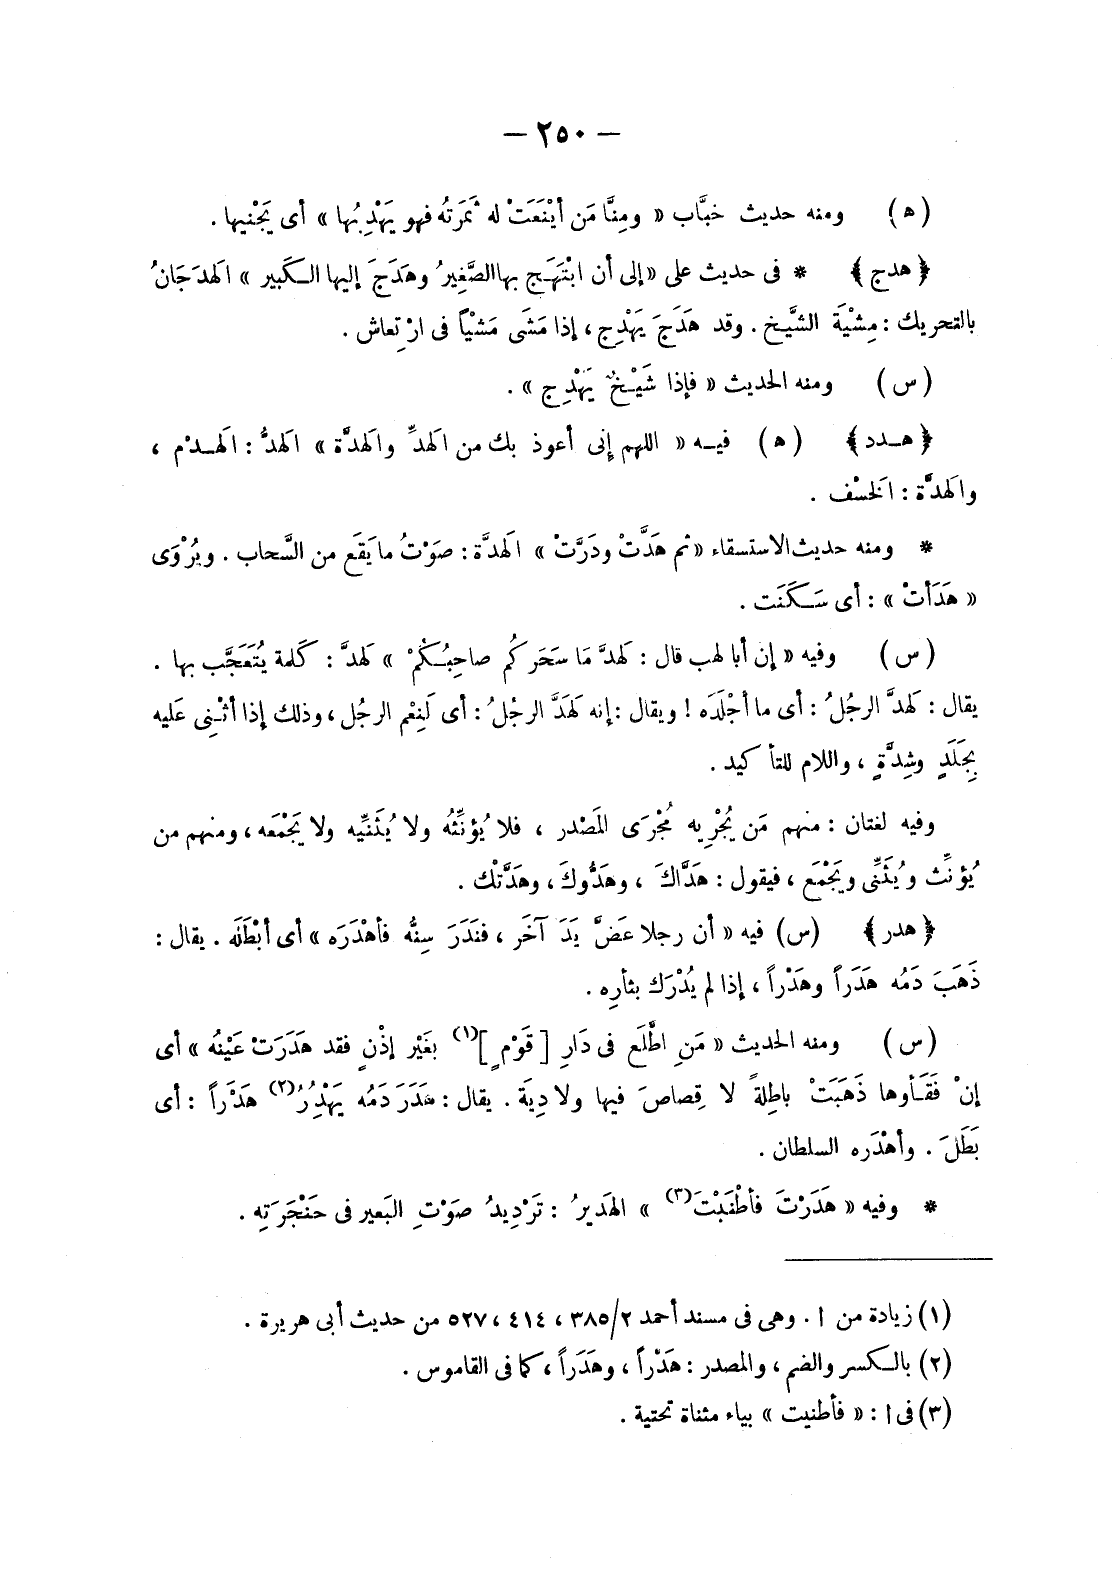 — ٢٥٠ —
(ه) ومنه حديث خبَّاب « ومِنَّا مَن أيْنَعَتْ له ثَمَرَتُه فهو يَهْدِبُها » أى يَجْنيها .
﴿ هدج ﴾ * فى حديث على « إلى أن ابْتَهَج بها الصَّغِيرُ وهَدَجَ إليها الكَبير » الهَدجَانُ
بالتحريك : مِشْيَة الشَّيخ . وقد هَدَجَ يَهْدِج ، إذا مَشَى مَشْيًا فى ارْتِعاش .
(س) ومنه الحديث « فإذا شَيْخٌ يَهْدِج » .
﴿ هدد ﴾ (ه) فيه « اللهم إنى أعوذ بك من الهَدِّ والهَدَّة » الهَدُّ : الهَدْم ،
والهَدَّة : الخَسْف .
* ومنه حديث الاستسقاء « ثم هَدَّتْ ودَرَّتْ » الهَدَّة : صَوْتُ ما يَقَع من السَّحاب . ويُرْوَى
« هَدَأتْ » : أى سَكَنَت .
(س) وفيه « إن أبا لهب قال : لَهَدَّ مَا سَحَرَكُم صاحِبُكُمْ » لَهَدَّ : كَلمة يُتَعَجَّب بها .
يقال : لَهَدَّ الرجُلُ : أى ما أجْلَدَه ! ويقال : إنه لَهَدَّ الرجُلُ : أى لَنِعْم الرجُل ، وذلك إذا أثْنِى عَليه
بِجَلَدٍ وشِدَّةٍ ، واللام للتأكيد .
وفيه لغتان : منهم مَن يُجْرِيه مُجْرَى المَصْدر ، فلا يُؤَنِّثُه ولا يُثَنِّيه ولا يَجْمَعه ، ومنهم من
يُؤَنِّث ويُثَنِّى ويَجْمَع ، فيقول : هَدَّاكَ ، وهَدُّوكَ ، وهَدَّتْك .
﴿ هدر ﴾ (س) فيه « أن رجلا عَضَّ يَدَ آخَر ، فنَدَرَ سِنُّه فأهْدَرَه » أى أبْطَلَه . يقال :
ذَهَبَ دَمُه هَدَراً وهَدْراً ، إذا لم يُدْرَك بثأرِه .
(س) ومنه الحديث « مَنِ اطَّلَع فى دَارِ [ قَوْمٍ ](١) بغَيْر إذْنٍ فقد هَدَرَتْ عَيْنُه » أى
إنْ فَقَأوها ذَهَبَتْ باطِلةً لا قِصاصَ فيها ولا دِيَة . يقال : هَدَرَ دَمُه يَهْدِرُ(٢) هَدْراً : أى
بَطَلَ . وأهْدَره السلطان .
* وفيه « هَدَرْتَ فأطْنَبْتَ(٣) » الهَديرُ : تَرْديدُ صَوْتِ البَعير فى حَنْجَرَتِه .
(١) زيادة من ا . وهى فى مسند أحمد ٣٨٥/٢ ، ٤١٤ ، ٥٢٧ من حديث أبى هريرة .
(٢) بالكسر والضم ، والمصدر : هَدْراً ، وهَدَراً ، كما فى القاموس .
(٣) فى ا : « فأطنيت » بياء مثناة تحتية .